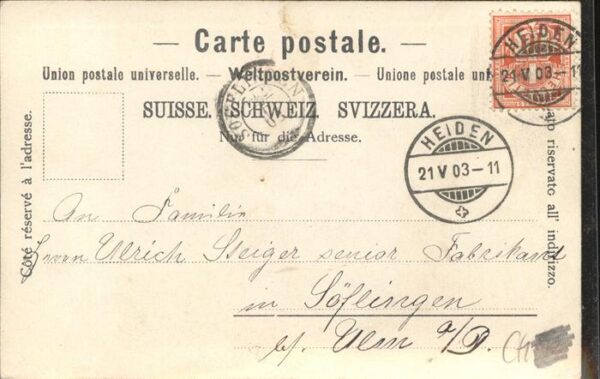 — Carte postale. —
Union postale universelle. — Weltpostverein. — Unione postale
SUISSE. SCHWEIZ. SVIZZERA.
Nur für die Adresse.
Côté réservé à l'adresse.
riservato all' indirizzo.
HEIDEN
21 V 03 - 11
HEIDEN
21 V 03 - 11
An Familie
Herrn Ulrich Steiger senior Fabrikant
in Söflingen
bf. Ulm a/D.